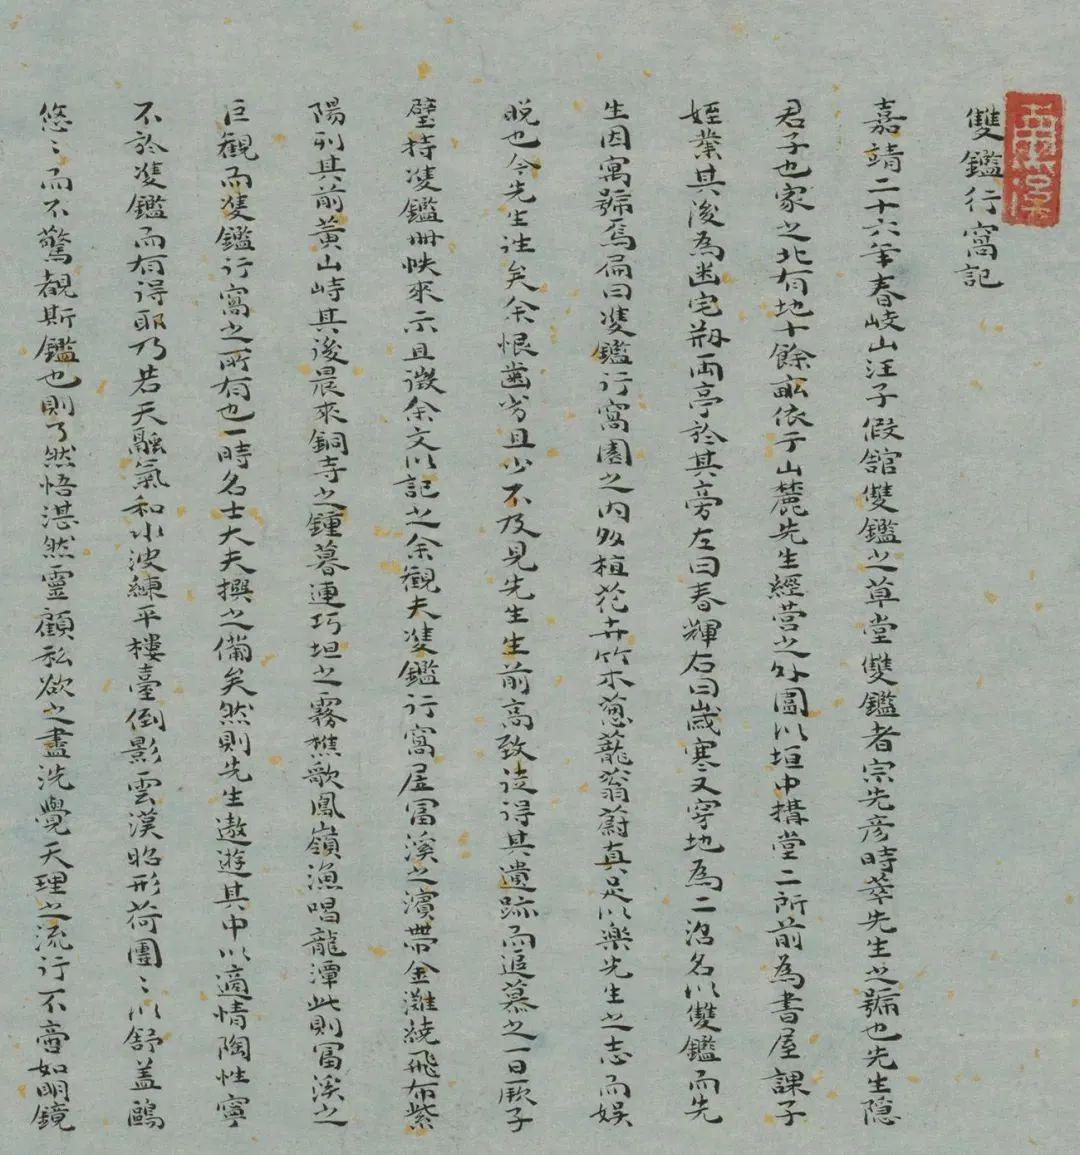 雙鑑行窩記
嘉靖二十六年春岐山汪子假舘雙鑑之草堂雙鑑者宗先彦時萃先生之號也先生隱
君子也家之北有地十餘畝依于山麓先生經营之外圍以垣中構堂二所前為書屋課子
姪業其後為幽宅搠兩亭於其旁左曰春輝右曰歲寒又穿地為二沼名以雙鑑而先
生因寓號焉扁曰雙鑑行窩園之内多植花卉竹木葱蘢蓊蔚真足以樂先生之志而娱
晚也今先生逝矣余恨齒劣且少不及見先生生前高致徒得其遺跡而追慕之一日厥子
璧持雙鑑冊帙來示且徵余文以記之余觀夫雙鑑行窩居冨溪之濵帶金灘繞飛布紫
陽列其前黄山峙其後晨來銅寺之鍾暮連巧坦之霧樵歌鳳嶺漁唱龍潭此則冨溪之
巨觀而雙鑑行窩之所有也一時名士大夫撰之備矣然則先生遨遊其中以適情陶性寧
不於雙鑑而有得耶乃若天融氣和水波練平樓臺倒影雲漢昭形荷團〻以舒盖鷗
悠〻而不驚覩斯鑑也則了然悟湛然靈顧私欲之盡洗覺天理之流行不啻如明鏡